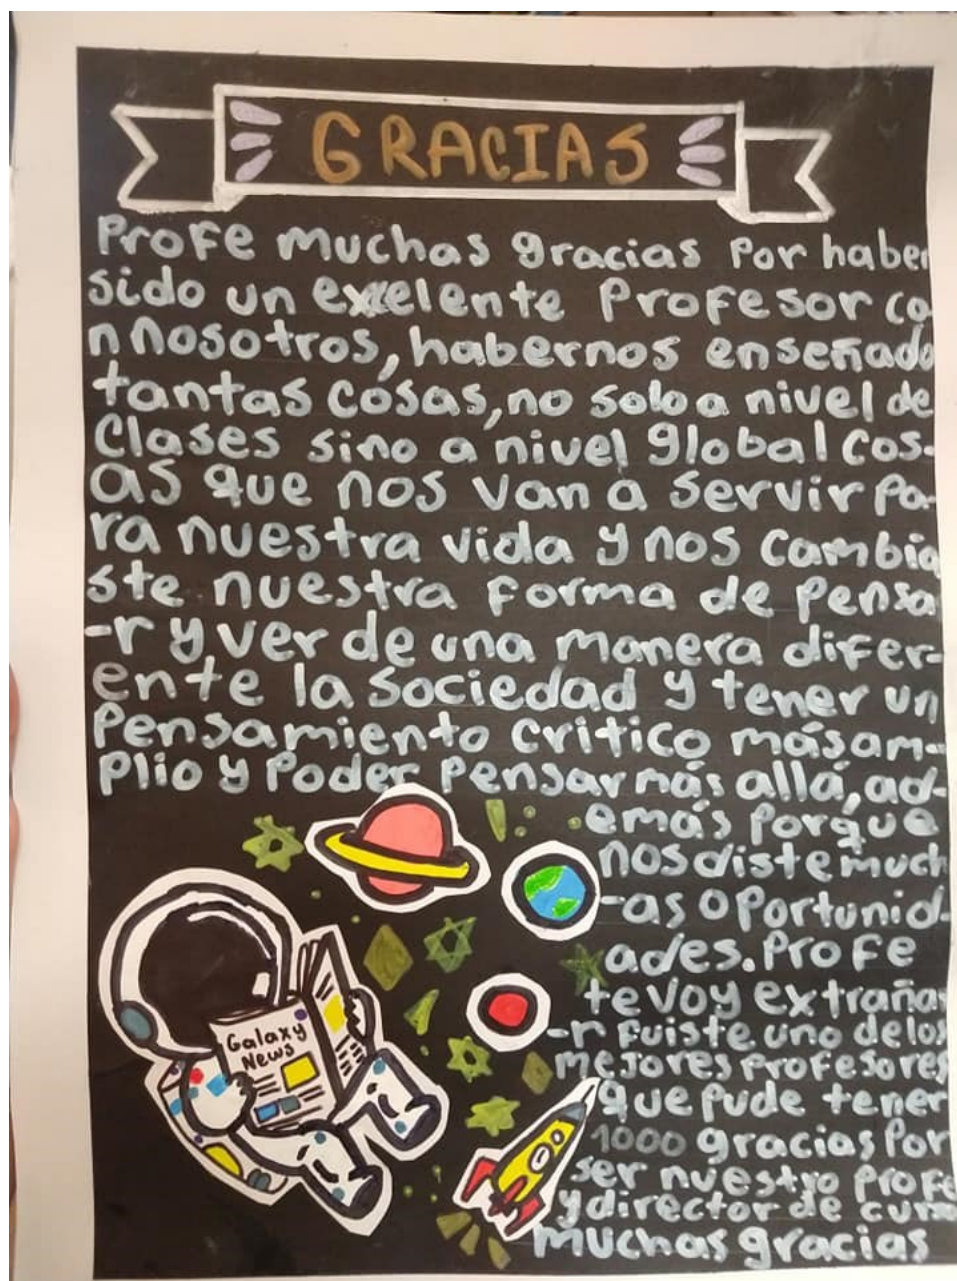 GRACIAS
Profe muchas gracias por haber
sido un exelente Profesor co
nnosotros, habernos enseñado
tantas cosas, no solo a nivel de
Clases sino a nivel global cos-
as que nos van a servir pa-
ra nuestra vida y nos cambia
ste nuestra forma de pensa
-r y ver de una manera difer-
ente la sociedad y tener un
Pensamiento critico más am-
plio y Poder Pensar más allá, ad-
emás porque
nos diste much
-as oportunid-
ades. Profe
te voy extraña
-r fuiste uno de los
mejores profesores
que pude tener
1000 gracias por
ser nuestro profe
y director de curso
muchas gracias
Galaxy
News